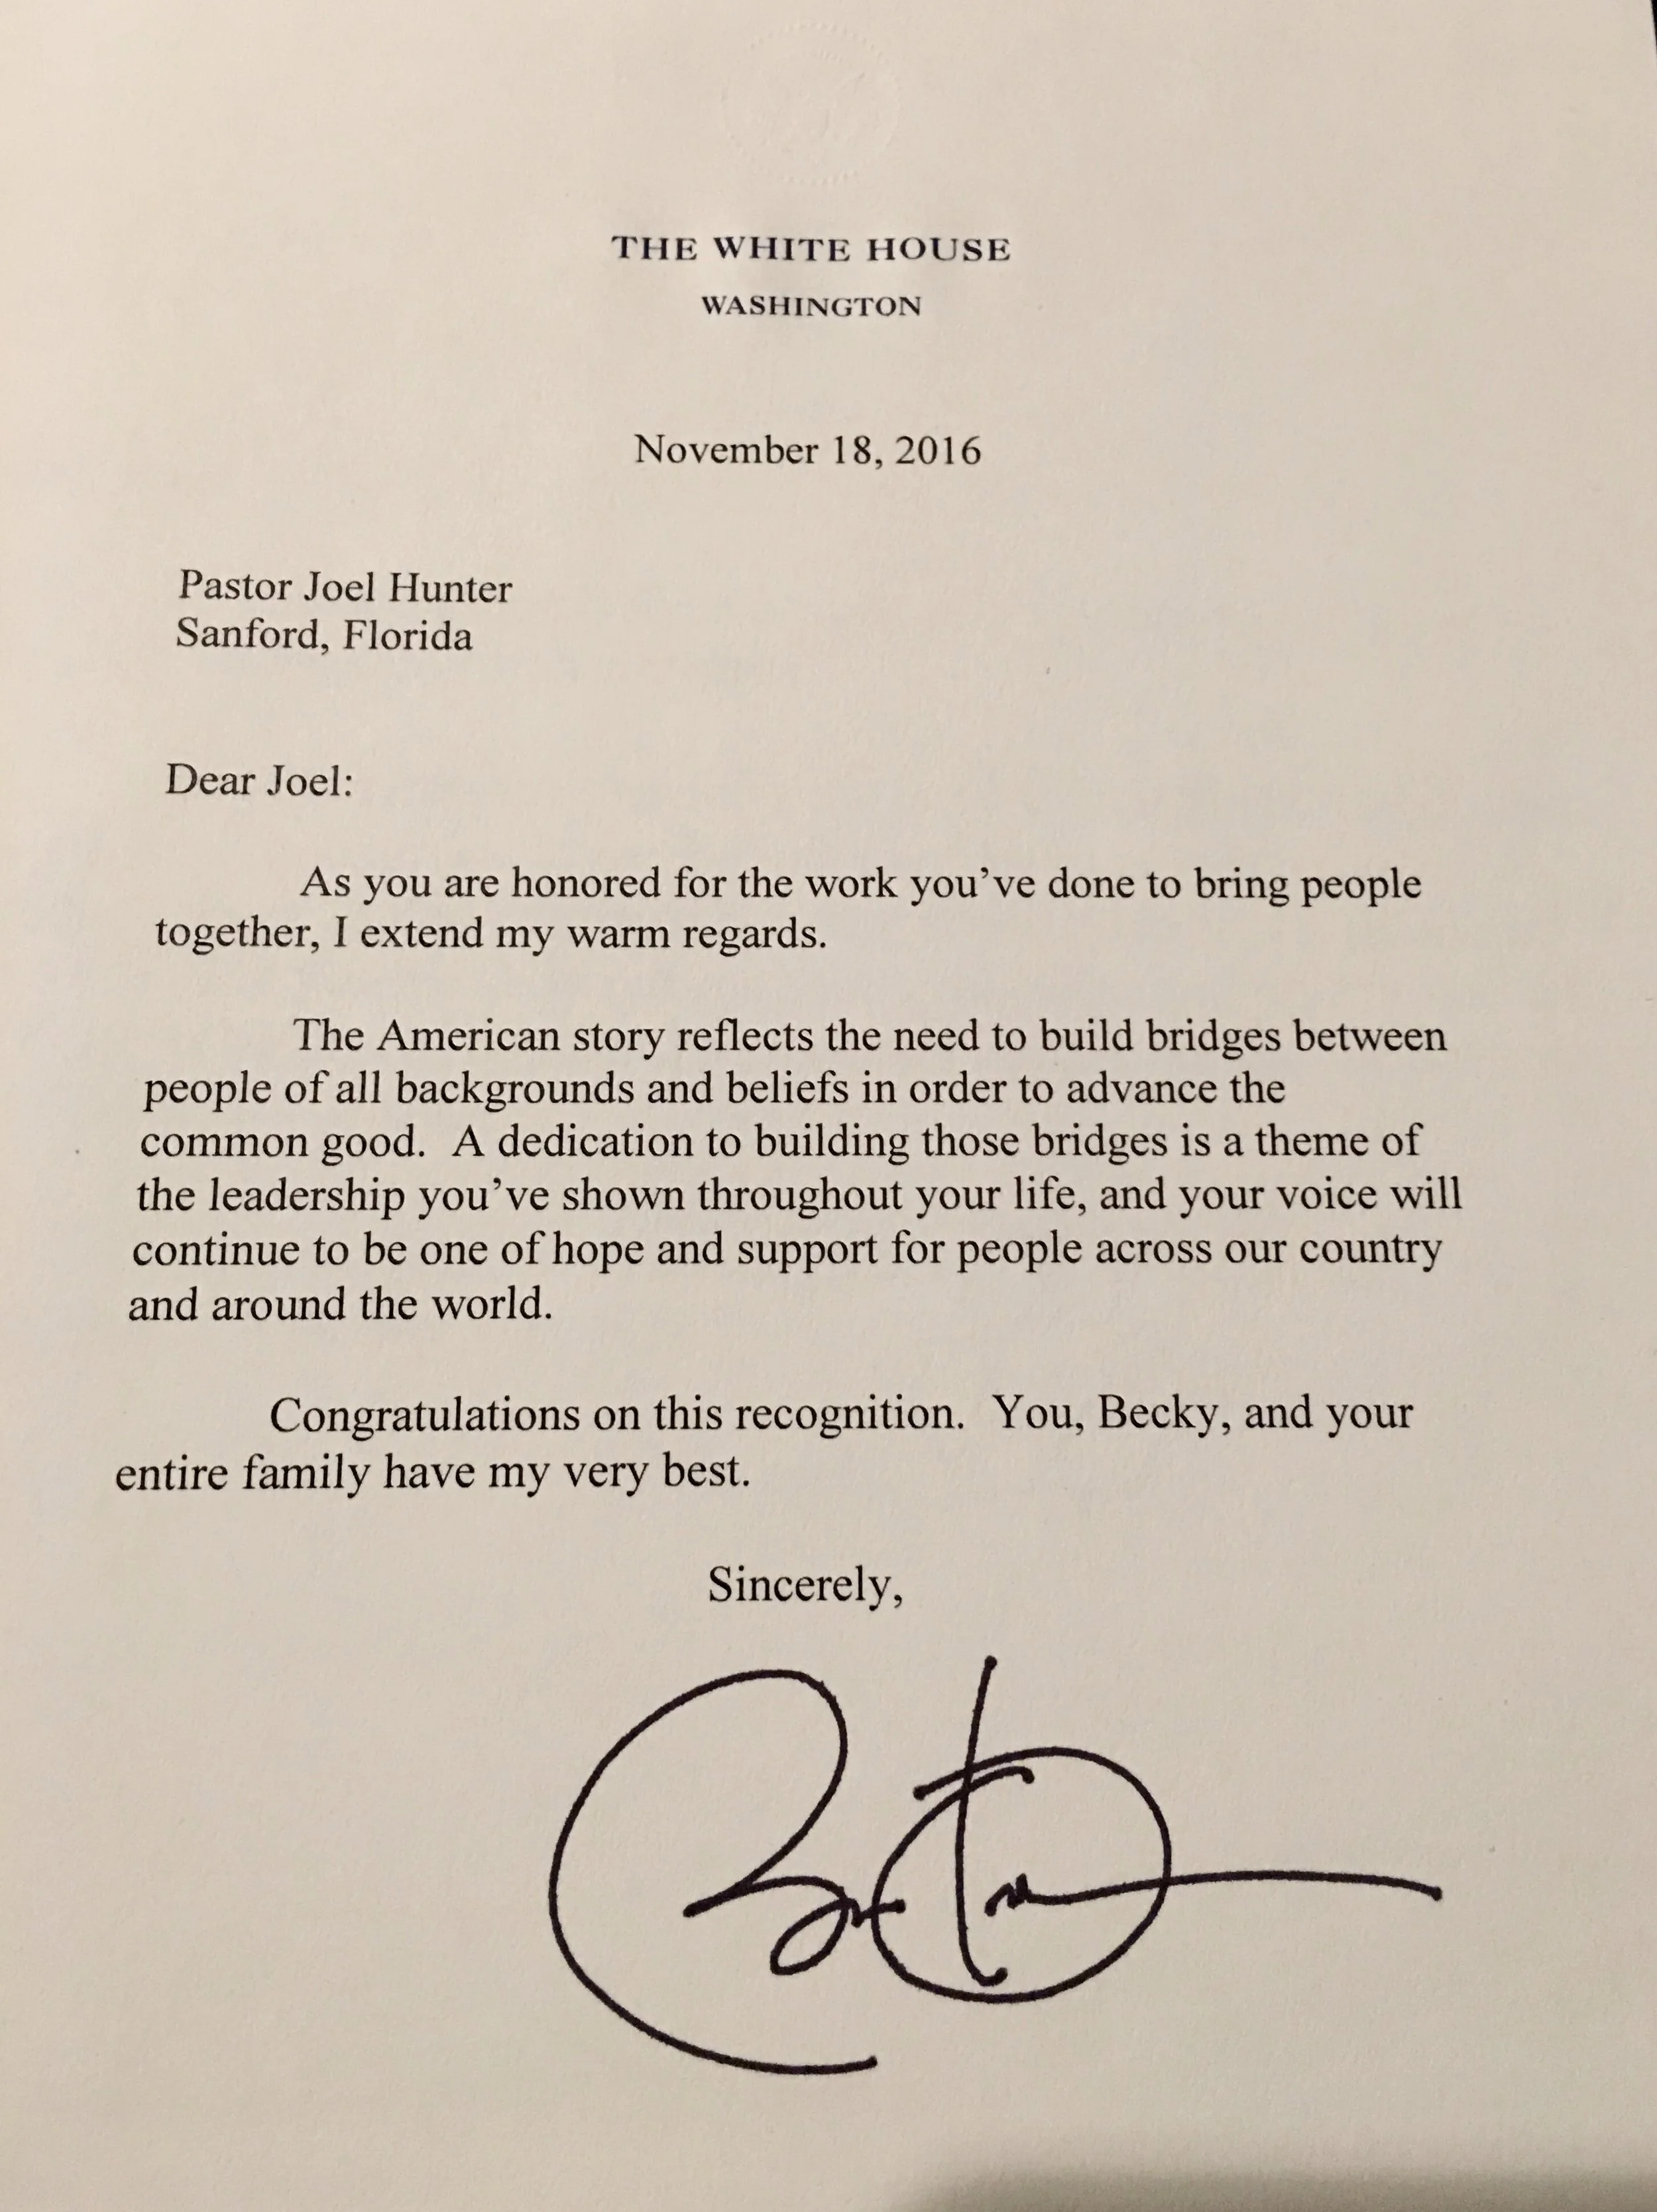 THE WHITE HOUSE
WASHINGTON
November 18, 2016
Pastor Joel Hunter
Sanford, Florida
Dear Joel:
As you are honored for the work you've done to bring people
together, I extend my warm regards.
The American story reflects the need to build bridges between
people of all backgrounds and beliefs in order to advance the
common good.  A dedication to building those bridges is a theme of
the leadership you've shown throughout your life, and your voice will
continue to be one of hope and support for people across our country
and around the world.
Congratulations on this recognition.  You, Becky, and your
entire family have my very best.
Sincerely,